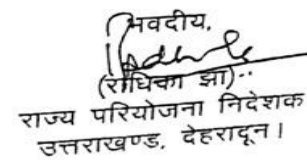 भवदीय,
(राधिका झा)..
राज्य परियोजना निदेशक
उत्तराखण्ड, देहरादून।